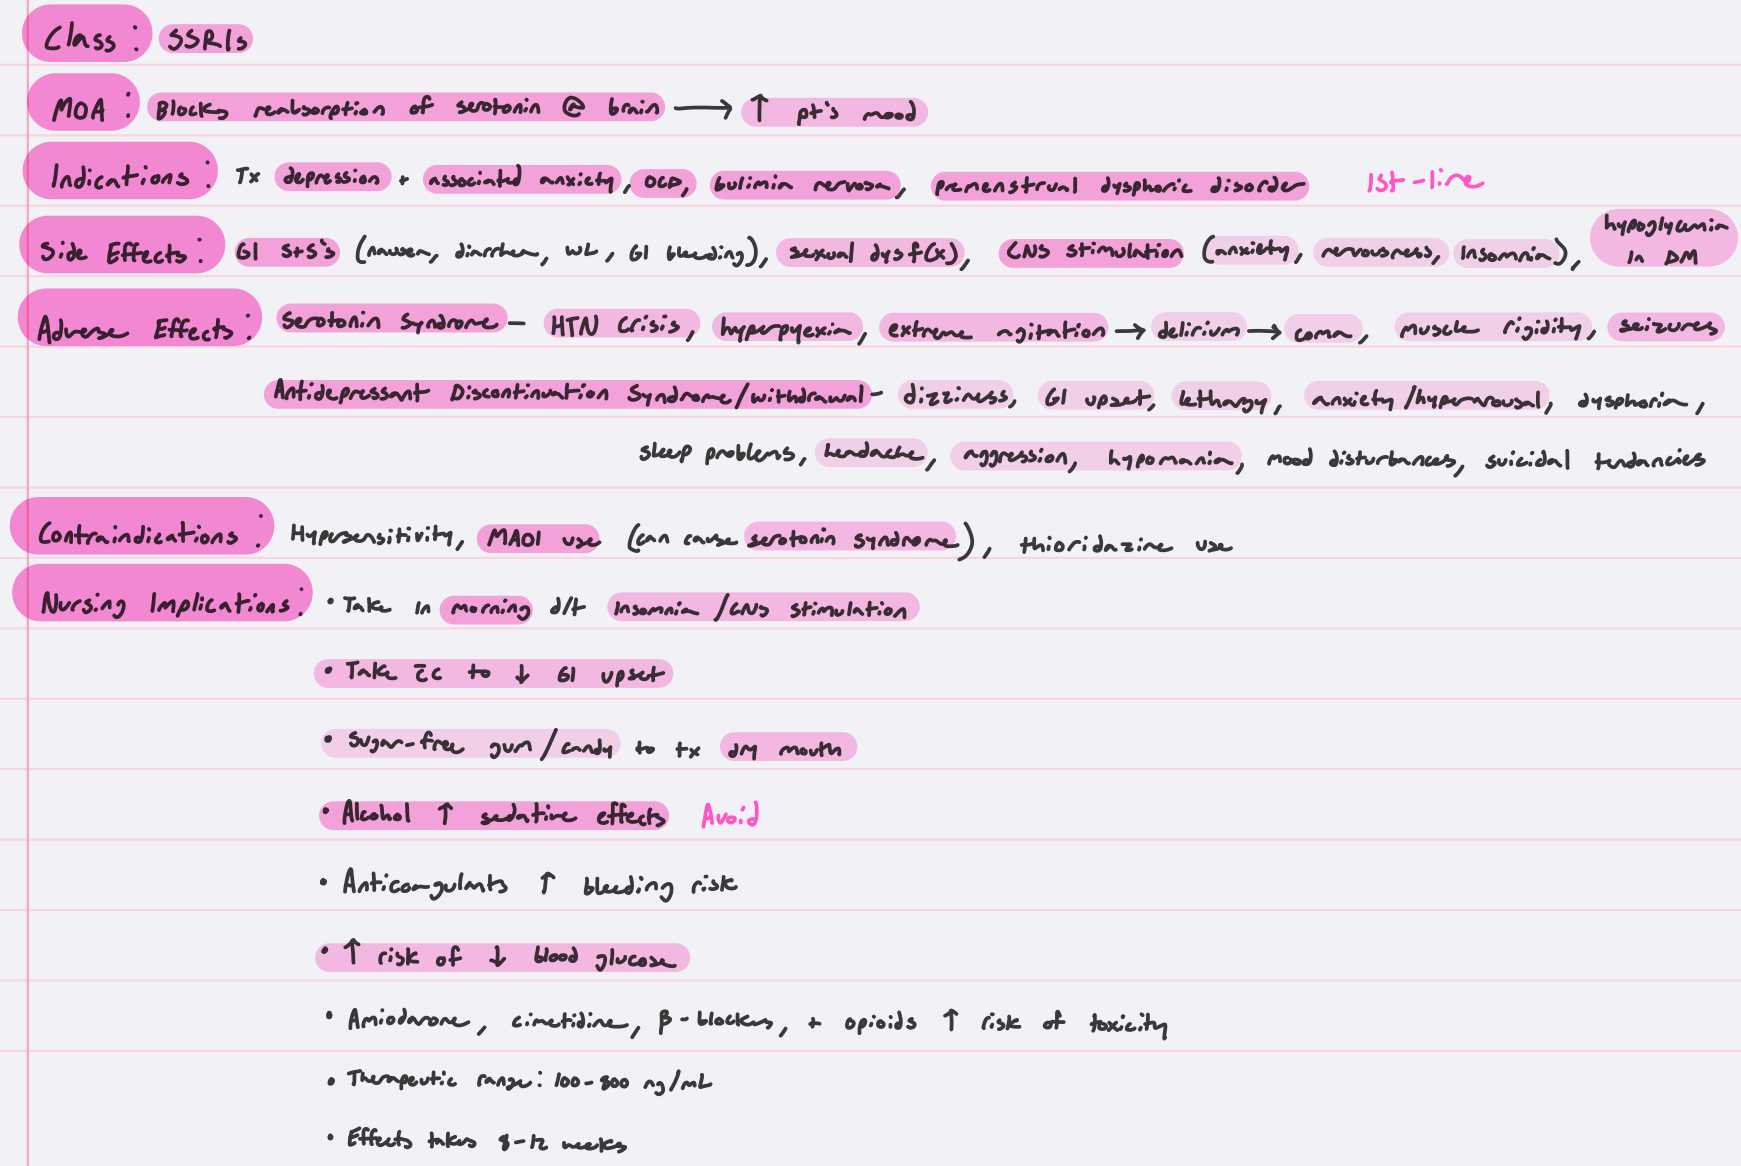 Class: SSRIs
MOA: Blocks reabsorption of serotonin @ brain → ↑ pt's mood
Indications: Tx depression + associated anxiety, OCD, bulimia nervosa, premenstrual dysphoric disorder 1st-line
Side Effects: GI S+S's (nausea, diarrhea, WL, GI bleeding), sexual dysf(x), CNS stimulation (anxiety, nervousness, insomnia), hypoglycemia in DM
Adverse Effects: Serotonin Syndrome – HTN Crisis, hyperpyexia, extreme agitation → delirium → coma, muscle rigidity, seizures
Antidepressant Discontinuation Syndrome/withdrawal – dizziness, GI upset, lethargy, anxiety/hyperarousal, dysphoria,
sleep problems, headache, aggression, hypomania, mood disturbances, suicidal tendancies
Contraindications: Hypersensitivity, MAOI use (can cause serotonin syndrome), thioridazine use
Nursing Implications: • Take in morning d/t insomnia/CNS stimulation
• Take c̄ c to ↓ GI upset
• Sugar-free gum/candy to tx dry mouth
• Alcohol ↑ sedative effects Avoid
• Anticoagulants ↑ bleeding risk
• ↑ risk of ↓ blood glucose
• Amiodarone, cimetidine, β-blockers, + opioids ↑ risk of toxicity
• Therapeutic range: 100-800 ng/mL
• Effects takes 8-12 weeks